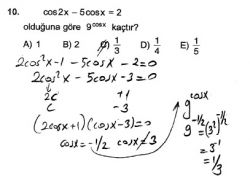 10. cos2x − 5cosx = 2
olduğuna göre 9^cosx kaçtır?
A) 1 B) 2 C) 1/3 D) 1/4 E) 1/5
2cos²x-1 -5cosx -2=0
2cos²x -5cosx -3=0
2C +1
C -3
(2cosx+1)(cosx-3)=0
cosx=-1/2 cosx≠3
9^cosx
9^-1/2 = (3²)^-1/2
=3^-1
=1/3